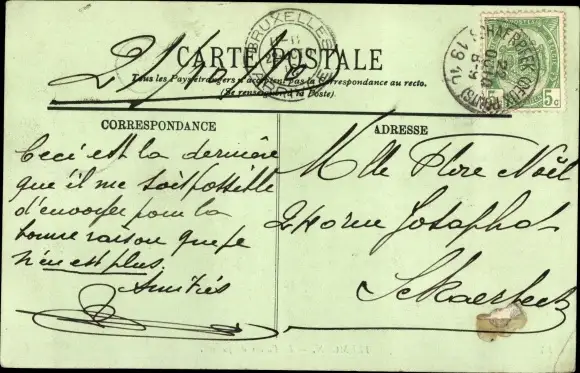 BRUXELLES
CARTE POSTALE
Tous les Pays étrangers n'acceptent pas la Correspondance au recto.
(Se renseigner à la Poste).
5c 5c
CORRESPONDANCE
Ceci est la dernière
que il me soit possible
d'envoyer pour la
bonne raison que je
n'en est plus.
Amitiés
ADRESSE
Mlle Flore Noël
240 rue Josaphat
Skaerbeek